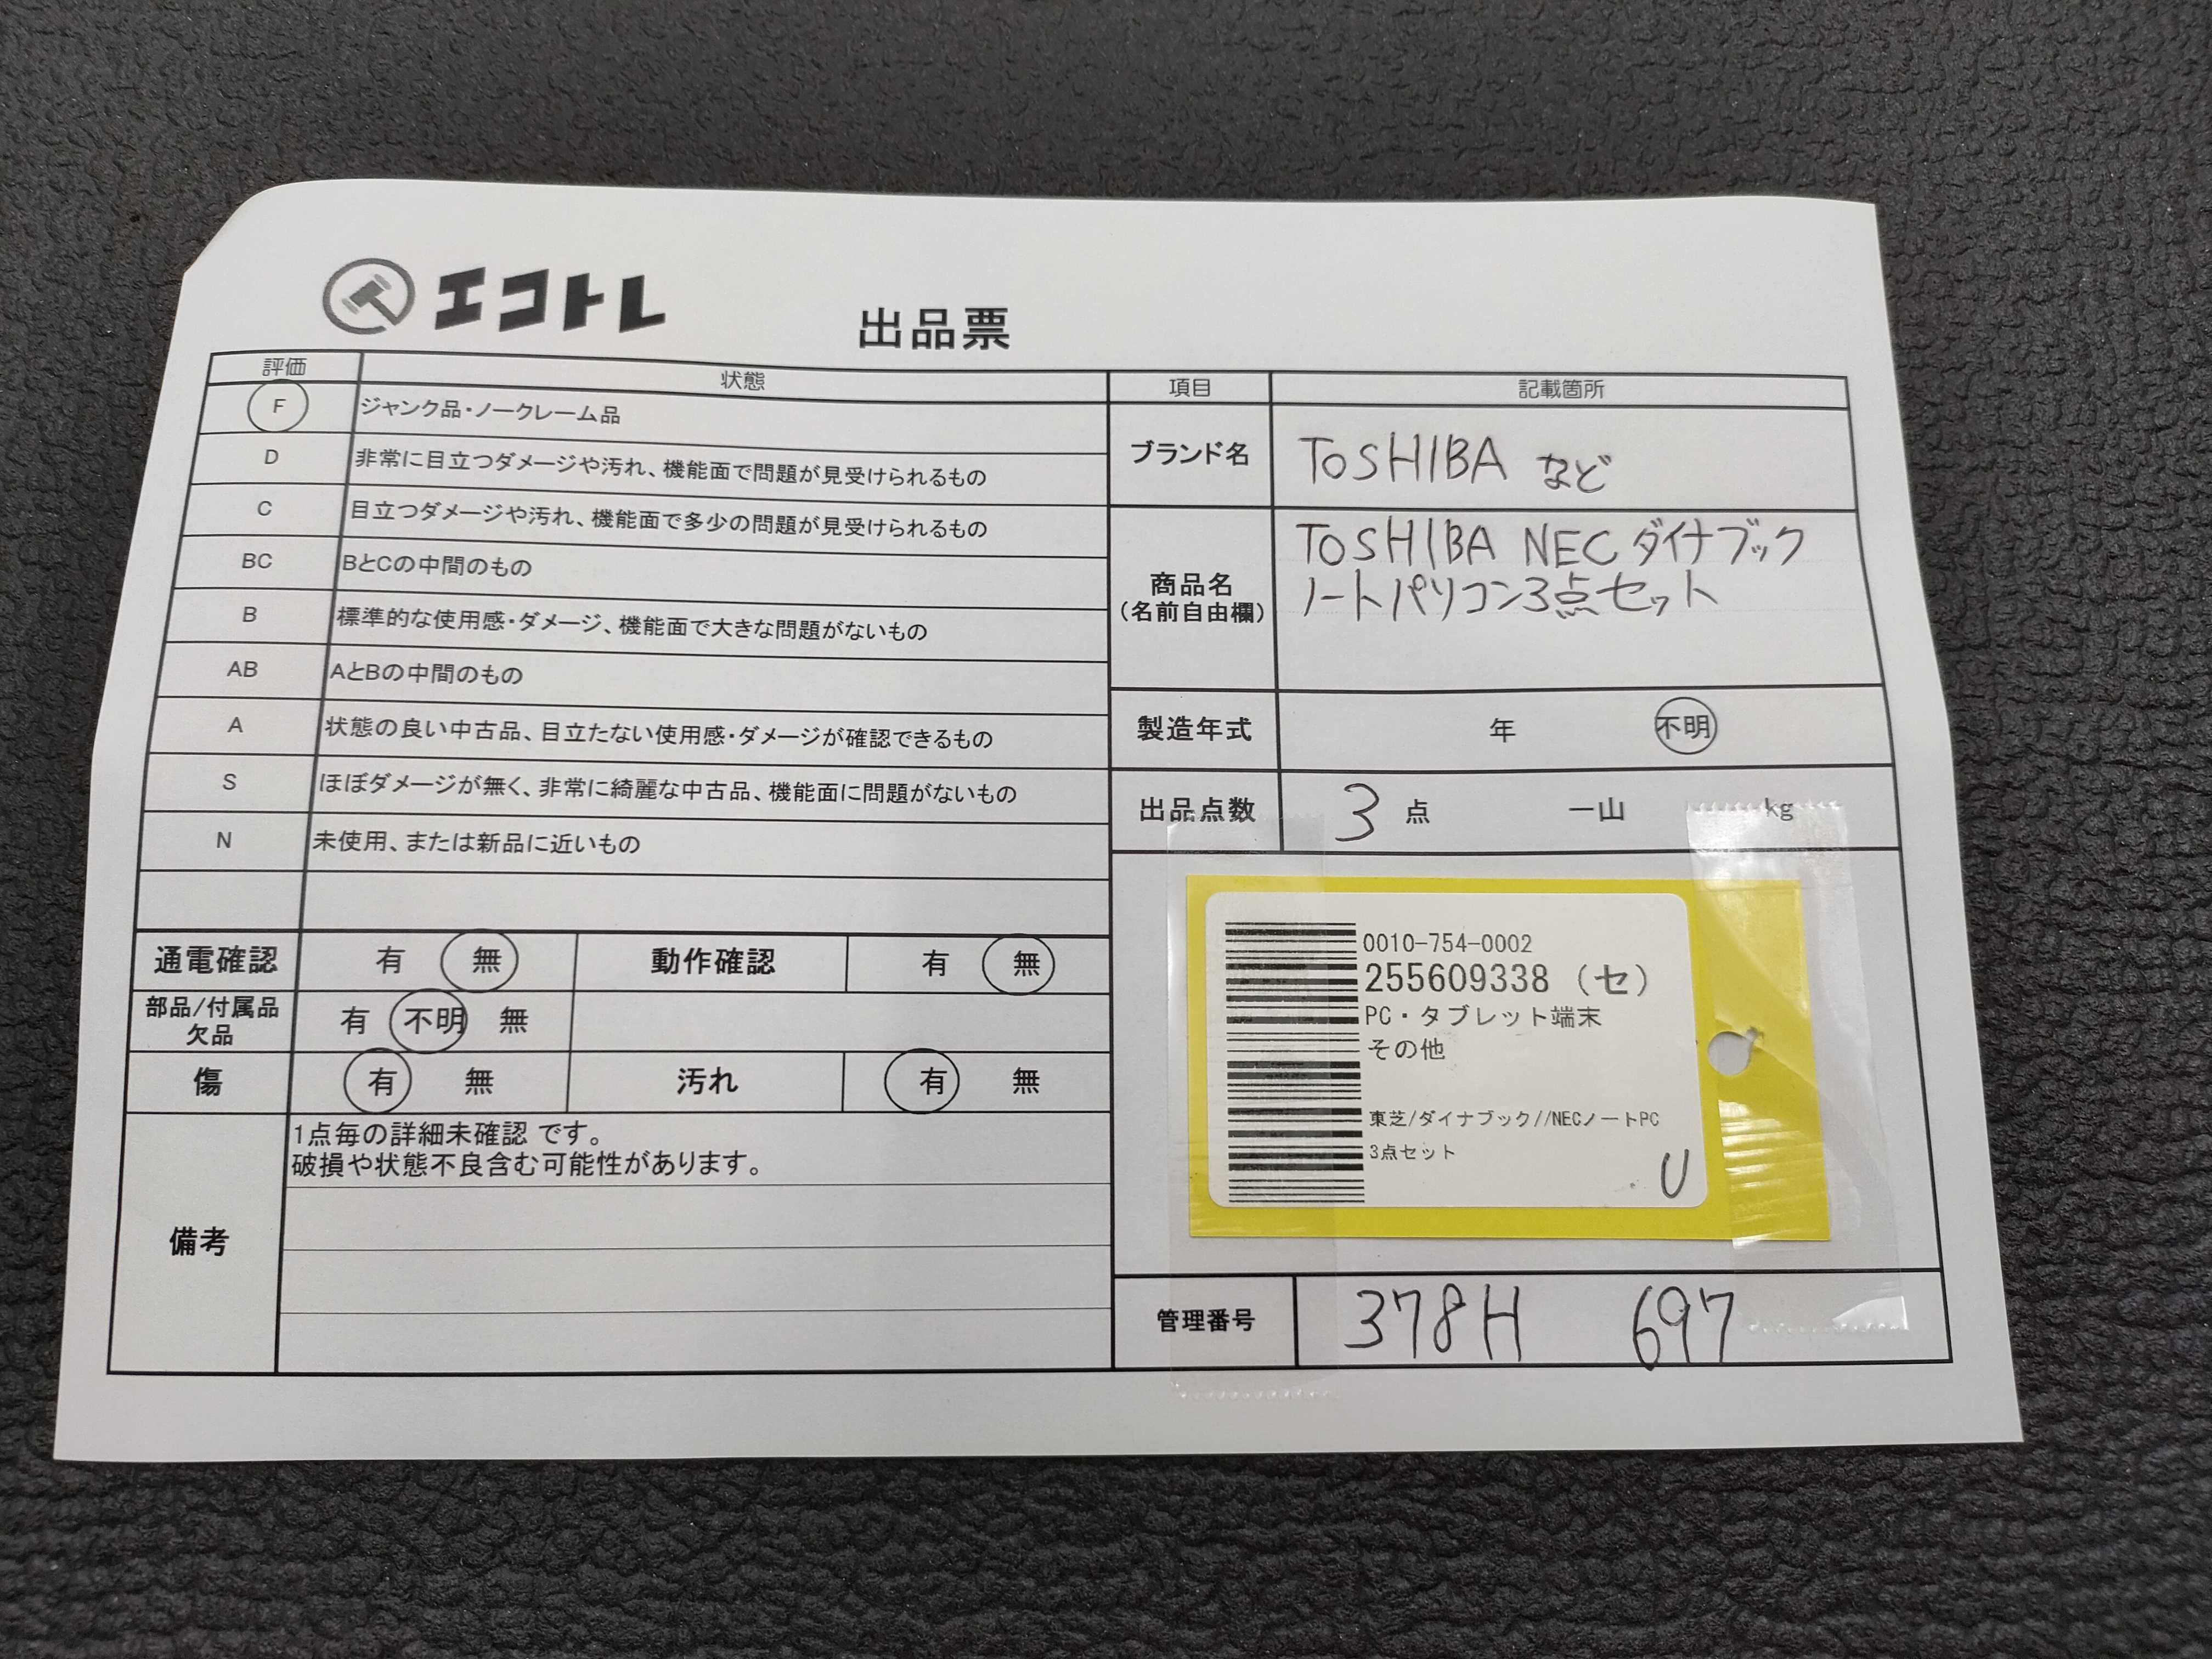 エコトレ
出品票
評価 状態
F ジャンク品・ノークレーム品
D 非常に目立つダメージや汚れ、機能面で問題が見受けられるもの
C 目立つダメージや汚れ、機能面で多少の問題が見受けられるもの
BC BとCの中間のもの
B 標準的な使用感・ダメージ、機能面で大きな問題がないもの
AB AとBの中間のもの
A 状態の良い中古品、目立たない使用感・ダメージが確認できるもの
S ほぼダメージが無く、非常に綺麗な中古品、機能面に問題がないもの
N 未使用、または新品に近いもの
通電確認 有 無 動作確認 有 無
部品/付属品
欠品 有 不明 無
傷 有 無 汚れ 有 無
備考
1点毎の詳細未確認 です。
破損や状態不良含む可能性があります。
項目 記載箇所
ブランド名 TOSHIBA など
商品名
(名前自由欄)
TOSHIBA NEC ダイナブック
ノートパソコン3点セット
製造年式 年 不明
出品点数 3 点 一山 kg
0010-754-0002
255609338 (セ)
PC・タブレット端末
その他
東芝/ダイナブック//NECノートPC
3点セット
U
管理番号 378H 697